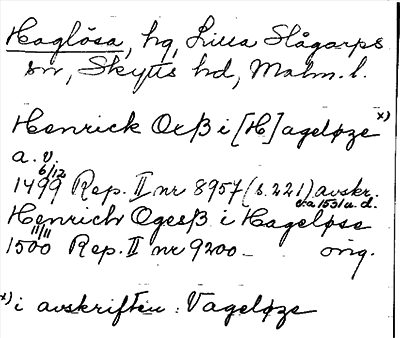 Haglösa, hg, Lilla Slågarps
sn, Skytts hd, Malm. l.
Henrick Oeß i [H]ageløze x)
a. v.
6/12
1499 Rep. II nr 8957 (s. 221) avskr.
ca 1531 u. d.
Henrich Ogesß i Hageløse
11/11
1500 Rep. II nr 9200 – orig.
x) i avskriften: Vageløze